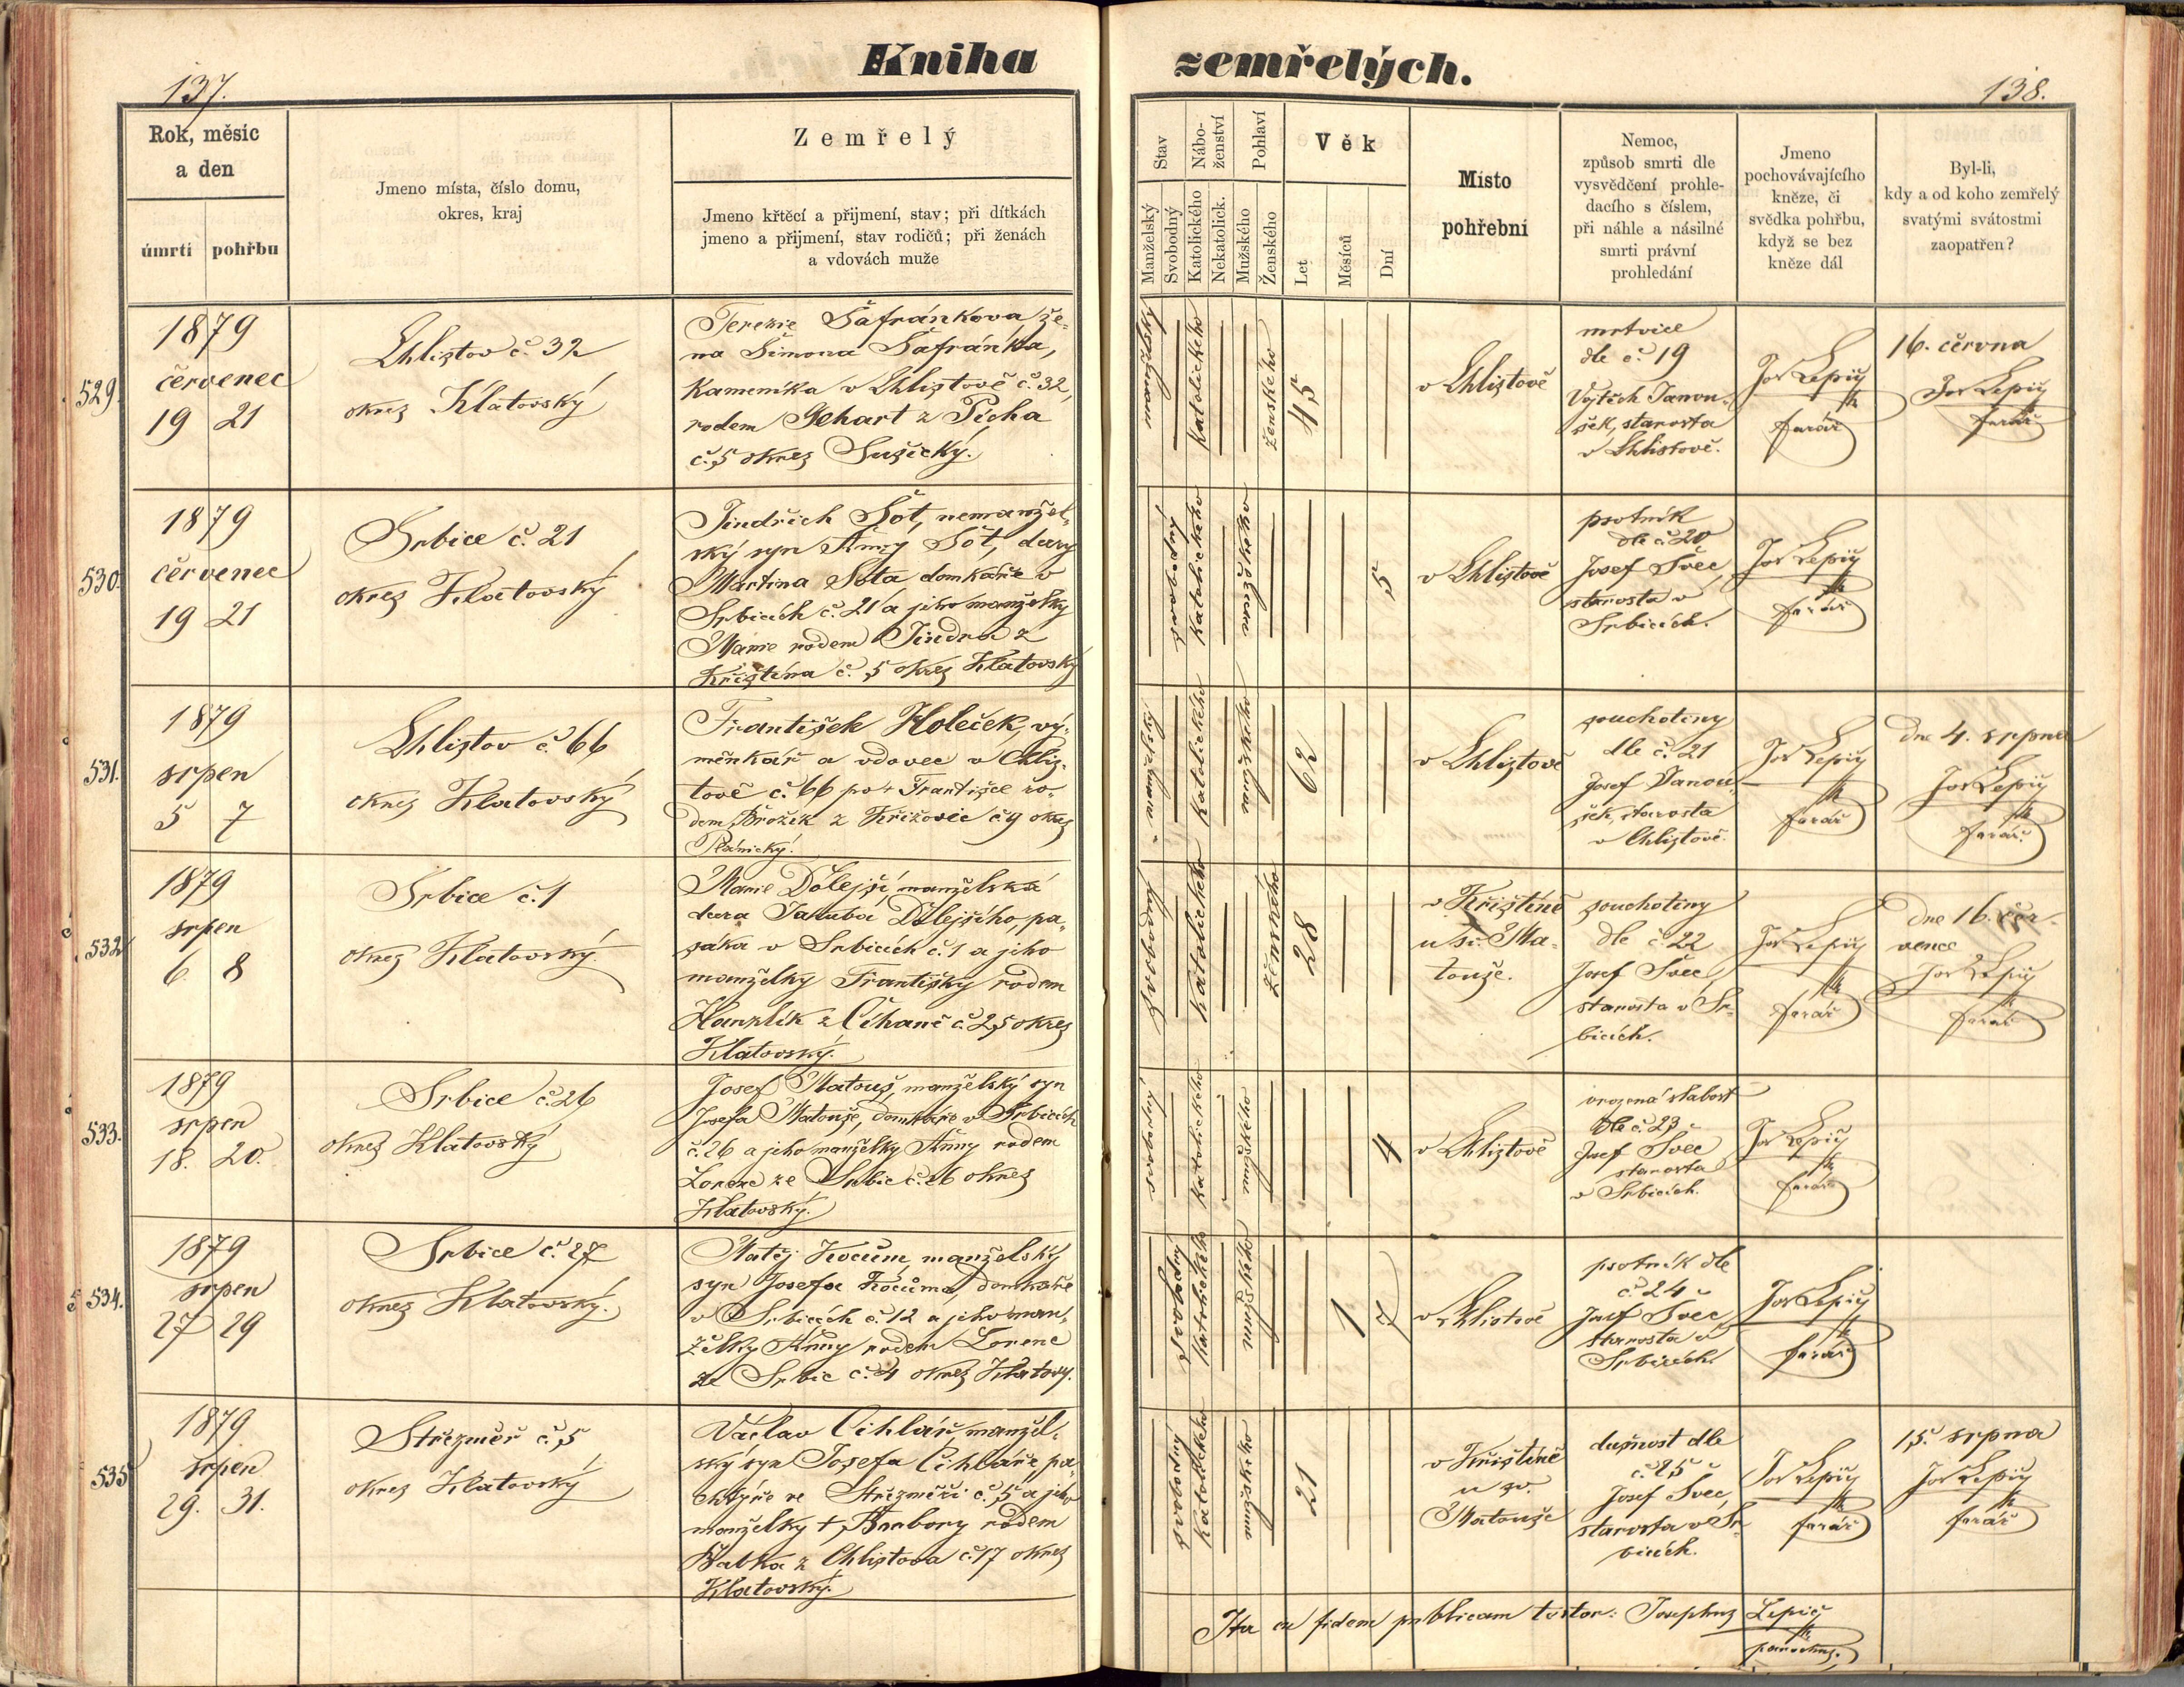 Kniha zemřelých.
137.
138.
Rok, měsíc
a den
úmrtí pohřbu
Jmeno místa, číslo domu,
okres, kraj
Zemřelý
Jmeno křtěcí a přijmení, stav; při dítkách
jmeno a přijmení, stav rodičů; při ženách
a vdovách muže
Stav
Manželský
Svobodný
Nábo-
ženství
Katolického
Nekatolick.
Pohlaví
Mužského
Ženského
Věk
Let
Měsíců
Dní
Místo
pohřební
Nemoc,
způsob smrti dle
vysvědčení prohle-
dacího s číslem,
při náhle a násilné
smrti právní
prohledání
Jmeno
pochovávajícího
kněze, či
svědka pohřbu,
když se bez
kněze dál
Byl-li,
kdy a od koho zemřelý
svatými svátostmi
zaopatřen?
529.
1879
červenec
19 21
Chlistov č. 32
okres Klatovský
Terezie Šafránkova že-
na Šimona Šafránka,
kameníka v Chlistově č. 32,
rodem Gehart z Picha
č. 5 okres Sušický.
manželský
katolického
ženského
45
v Chlistově
mrtvice
dle č. 19
Vojtěch Janou-
šek, starosta
v Chlistově.
Jos Lepič
farář
16. června
Jos Lepič
farář
530.
1879
červenec
19 21
Srbice č. 21
okres Klatovský
Jindřich Šot, nemanžel-
ský syn Anny Šot, dcery
Martina Šota domkáře v
Srbicích č. 21 a jeho manželky
Marie rodem Jindra z
Křištína č. 5 okres Klatovský
svobodný
katolického
mužského
5
v Chlistově
psotník
dle č. 20
Josef Švec,
starosta v
Srbicích.
Jos Lepič
farář
531.
1879
srpen
5 7
Chlistov č. 66
okres Klatovský
František Holeček, vý-
měnkář a vdovec v Chlis-
tově č. 66 po + Františce ro-
dem Brožík z Křižovic č 9 okres
Plánický.
manželský
katolického
mužského
62
v Chlistově
souchotiny
dle č. 21
Josef Janou-
šek, starosta
v Chlistově.
Jos Lepič
farář
dne 4. srpna
Jos Lepič
farář.
532
1879
srpen
6. 8
Srbice č. 1
okres Klatovský.
Marie Dolejší, manželská
dcera Jakuba Dolejšího, pa-
sáka v Srbicích č. 1 a jeho
manželky Františky rodem
Hanzlík z Číhaně č. 25 okres
Klatovský.
svobodný
katolického
ženského
28
v Křištíně
u sv. Ma-
touše.
souchotiny
dle č. 22
Josef Švec,
starosta v Sr-
bicích.
Jos Lepič
farář
dne 16. čer-
vence
Jos Lepič
farář
533.
1879
srpen
18. 20.
Srbice č. 26
okres Klatovský
Josef Matouš, manželský syn
Josefa Matouše, domkáře v Srbicích
č. 26 a jeho manželky Anny rodem
Lorenc ze Srbic č. 26 okres
Klatovský.
svobodný
katolického
mužského
4
v Chlistově
vrozená slabost
dle č. 23
Josef Švec
starosta
v Srbicích.
Jos Lepič
farář
534.
1879
srpen
27 29
Srbice č. 27
okres Klatovský.
Matěj Kocům, manželský
syn Josefa Kocůma, domkáře
v Srbicích č. 12 a jeho man-
želky Anny rodem Lorenc
ze Srbic č. 4 okres Klatový.
svobodný
katolického
mužského
1 7
v Chlistově
psotník dle
č. 24
Josef Švec
starosta v
Srbicích.
Jos Lepič
farář
535
1879
srpen
29. 31.
Střezměř č. 5
okres Klatovský
Václav Cihlář, manžel-
ský syn Josefa Cihláře, pa-
chtýře ve Střezměři č. 5 a jeho
manželky +, Barbory rodem
Babka z Chlistova č. 17 okres
Klatovský.
svobodný
katolického
mužského
21
v Křištíně
u sv.
Matouše
dušnost dle
č. 25
Josef Švec,
starosta v Sr-
bicích.
Jos Lepič
farář
15. srpna
Jos Lepič
farář
Ita ex fidem publicam testor: Josephus Lepič
parochus.